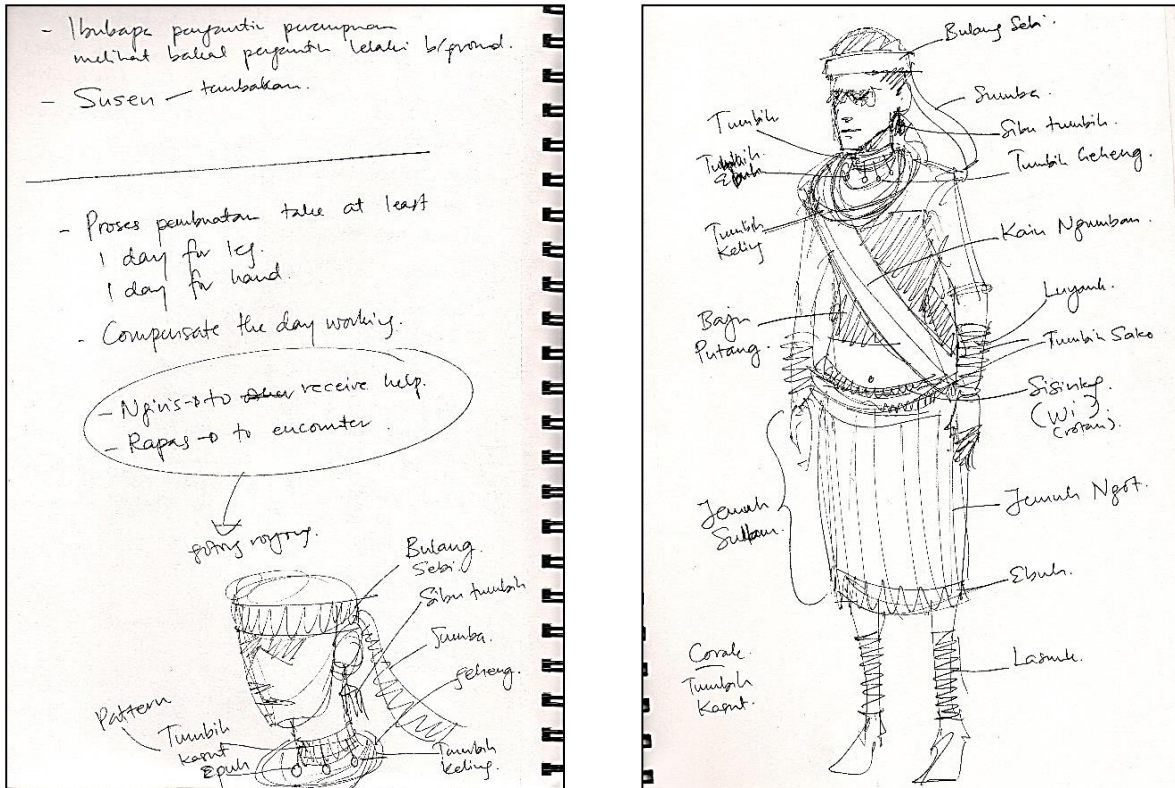 - Ibubapa pengantin perempuan
melihat bakal pengantin lelaki b/ground.
- Susen — tambakan.
- Proses pembuatan take at least
1 day for leg.
1 day for hand.
- Compensate the day working.
- Ngiris → to receive help.
- Rapas → to encounter.
gotong royong.
Bulang
Sebi.
Sibu tumbih
Sumba.
geheng.
Pattern
Tumbih
kasut
Epuh
Tumbih
Keling.
Bulang Sebi.
Sumba.
Sibu tumbih.
Tumbih Geheng
Tumbih
Tumbih
Ebuh
Tumbih
Keling
Kain Ngumban.
Baju
Putang.
Luyank.
Tumbih Sako
Sisinke
(Wi)
(rotan).
Jemuh
Jemuh Ngot.
Ebuh.
Lasunk.
Corak
Tumbih
Kasut.